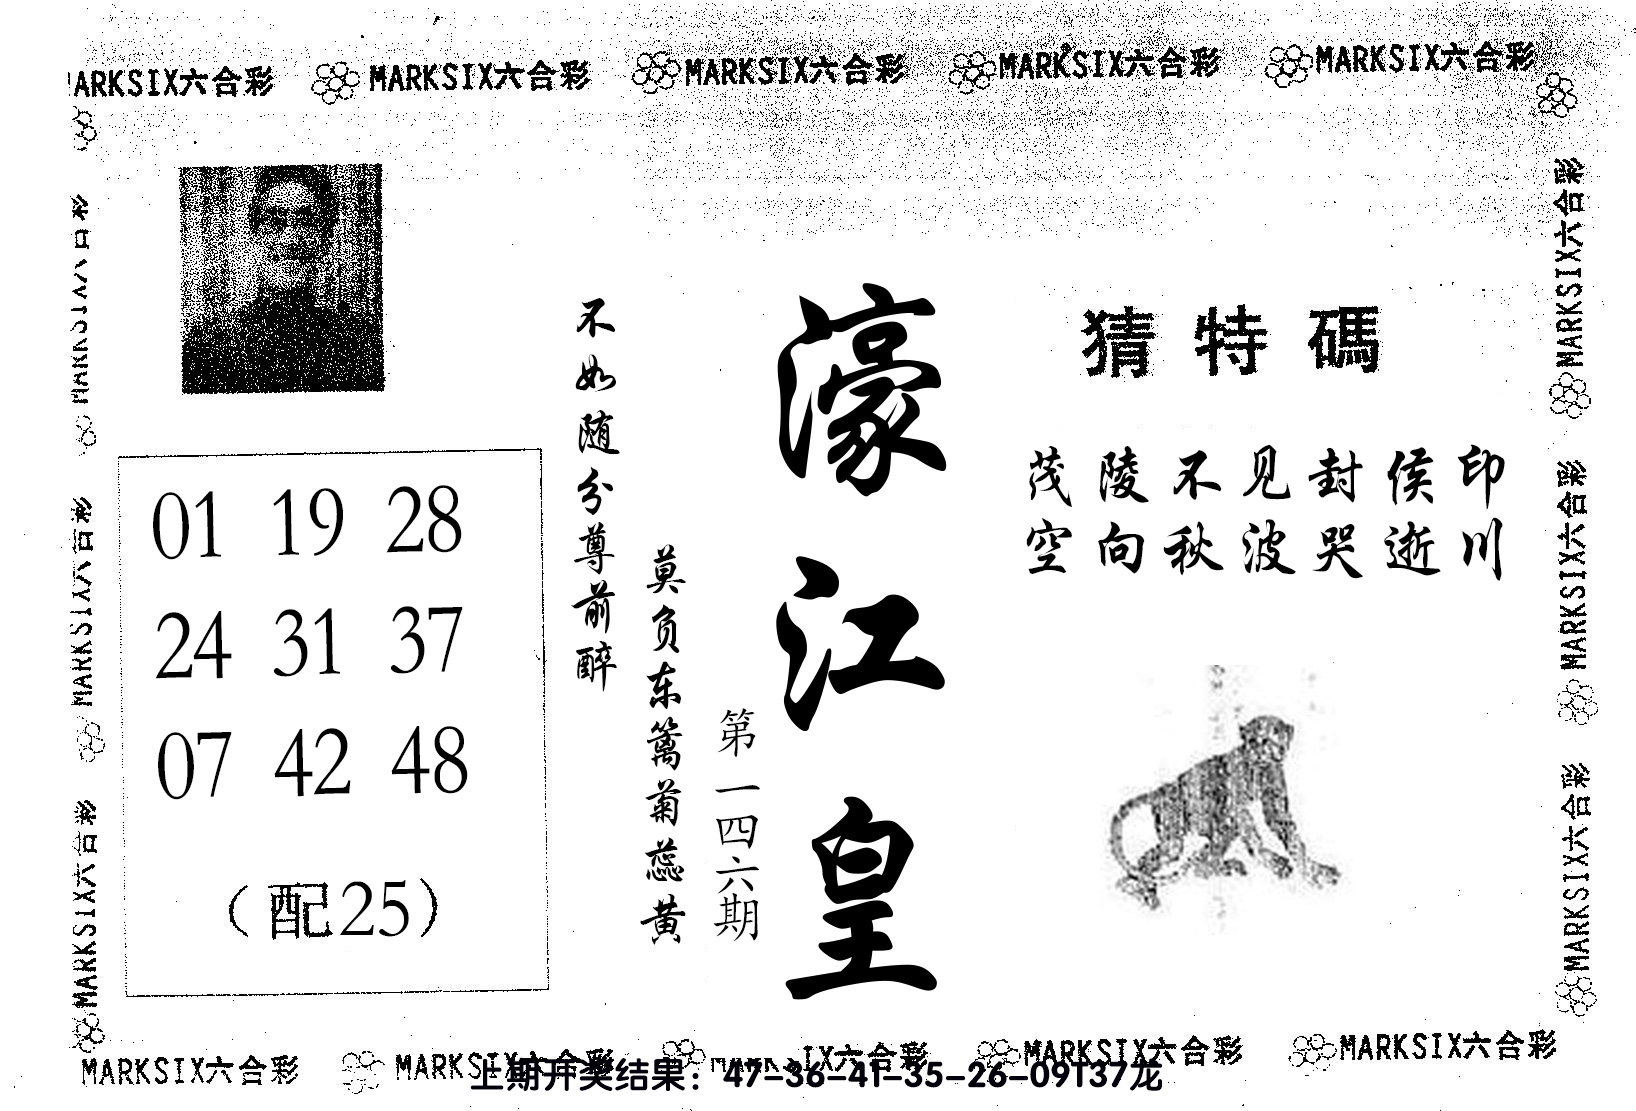 MARKSIX六合彩 MARKSIX六合彩 MARKSIX六合彩 MARKSIX六合彩 MARKSIX六合彩
猜特碼
茂陵不见封侯印
空向秋波哭逝川
濠江皇
第一四六期
莫负东篱菊蕊黄
不如随分尊前醉
01 19 28
24 31 37
07 42 48
（配25）
MARKSIX六合彩
MARKSIX六合彩
MARKSIX六合彩
MARKSIX六合彩
MARKSIX六合彩
MARKSIX六合彩
MARKSIX六合彩 MARKSIX六合彩 MARKSIX六合彩 MARKSIX六合彩 MARKSIX六合彩
上期开奖结果：47-36-41-35-26-09T37龙